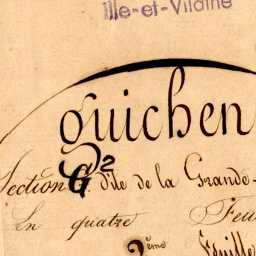 Ille-et-Vilaine
guichen
Section G2 d'ile de la Grande-
En quatre Feu
2ème Feuille